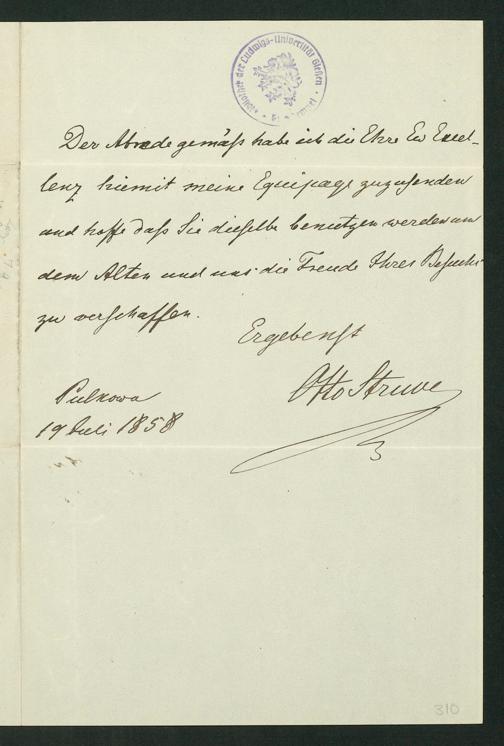 Bibliothek der Ludwigs-Universität Gießen
Der Abrede gemäß habe ich die Ehre Ew Excel-
lenz hiemit meine Equipage zuzusenden
und hoffe daß Sie dieselbe benutzen werden um
dem Alten und uns die Freude Ihres Besuchs
zu verschaffen.
Ergebenst
Otto Struve
Pulkowa
19 Juli 1858
310